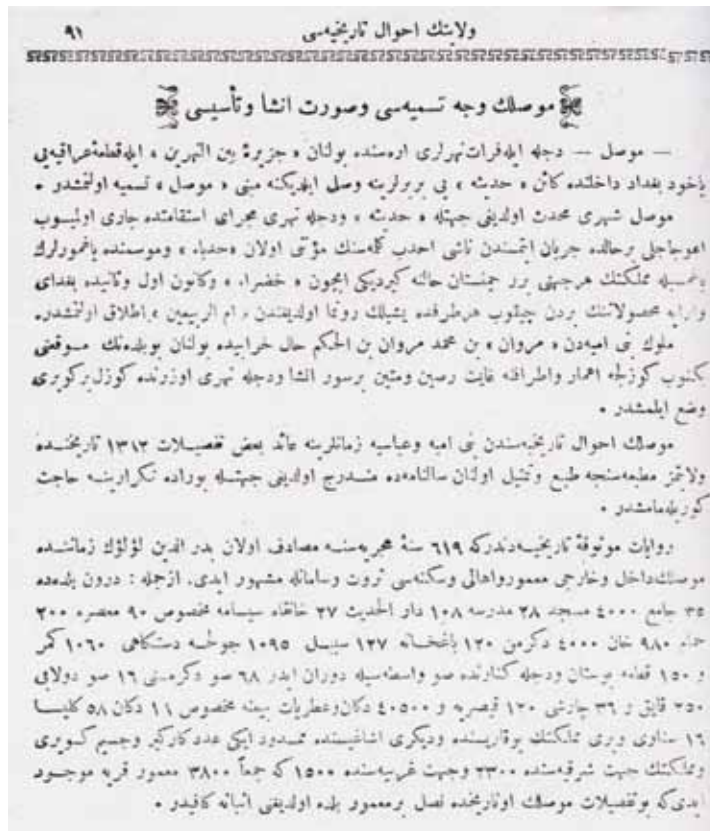 ولايتك احوال تاريخيه‌سى ٩١
موصلك وجه تسميه‌سى وصورت انشا وتأسيسى
— موصل — دجله ايله فرات نهرلرى اره‌سنده بولنان « جزيرهٔ بين النهرين » ايله قطعهٔ عراقيه‌يى
ياخود بغداد داخلنده كائن « حديثه » يى بربرلرينه وصل ايلديكنه مبنى « موصل » تسميه اولنمشدر .
موصل شهرى محدث اولديغى جهتله « حديثه » ودجله نهرى مجراى استقامتده جارى اولميوب
اعوجاجلى برحالده جريان ايتمسندن ناشى احدب كلمه‌سنك مؤنثى اولان «حدباء» وموسمنده ياغمورلرك
ياغمسيله مملكتك هرجهتى برر چمنستان حالنه كيرديكى ايچون « خضراء » وكانون اول وثانيده بغداى
وارپه محصولاتنك يردن چيقوب هرطرفده يشيللك رونما اولديغندن « ام الربيعين » اطلاق اولنمشدر.
ملوك بنى اميه‌دن « مروان » بن محمد مروان بن الحكم حال خرابيده بولنان بوبلده‌نك موقعنى
بكنوب كوزلجه اعمار واطرافنه غايت رصين ومتين برسور انشا ودجله نهرى اوزرنده كوزل بركوپرى
وضع ايلمشدر .
موصلك احوال تاريخيه‌سندن بنى اميه وعباسيه زمانلرينه عائد بعض تفصيلات ١٣١٢ تاريخنده
ولايتمز مطبعه‌سنجه طبع وتمثيل اولنان سالنامه‌ده مندرج اولديغى جهتله بوراده تكرارينه حاجت
كوريله‌مامشدر .
روايات موثوقهٔ تاريخيه‌دندركه ٦١٩ سنهٔ هجريه‌سنه مصادف اولان بدر الدين لؤلؤك زماننده
موصلك داخل وخارجى معمور واهالى وسكنه‌سى ثروت وسامانله مشهور ايدى. ازجمله : درون بلده‌ده
٣٥ جامع ٤٠٠٠ مسجد ٢٨ مدرسه ١٠٨ دار الحديث ٢٧ خانقاه سيسامه مخصوص ٩٠ معصره ٢٠٠
حمام ٩٨٠ خان ٤٠٠٠ دكرمن ١٢٠ باغخانه ١٢٧ سبيل ١٠٩٥ جولخه دستكاهى ١٠٦٠ كمر
و ١٥٠ قطعه بوستان ودجله كنارنده صو واسطه‌سيله دوران ايدر ٦٨ صو دكرمنى ١٦ صو دولابى
٢٥٠ قايق و ٣٦ چارشى ١٢٠ قيصريه و ٤٠٥٠٠ دكان وعطريات بيعنه مخصوص ١١ دكان ٥٨ كليسا
١٦ سناوى وبرى مملكتك يوقاريسنده وديكرى اشاغيسنده ممدود ايكى عدد كاركير وجسيم كوپرى
ومملكتك جهت شرقيه‌سنده ٢٣٠٠ وجهت غربيه‌سنده ١٥٠٠ كه جمعاً ٣٨٠٠ معمور قريه موجود
ايدى كه بوتفصيلات موصلك اوتاريخده نصل برمعمور بلده اولديغنى اثباته كافيدر .